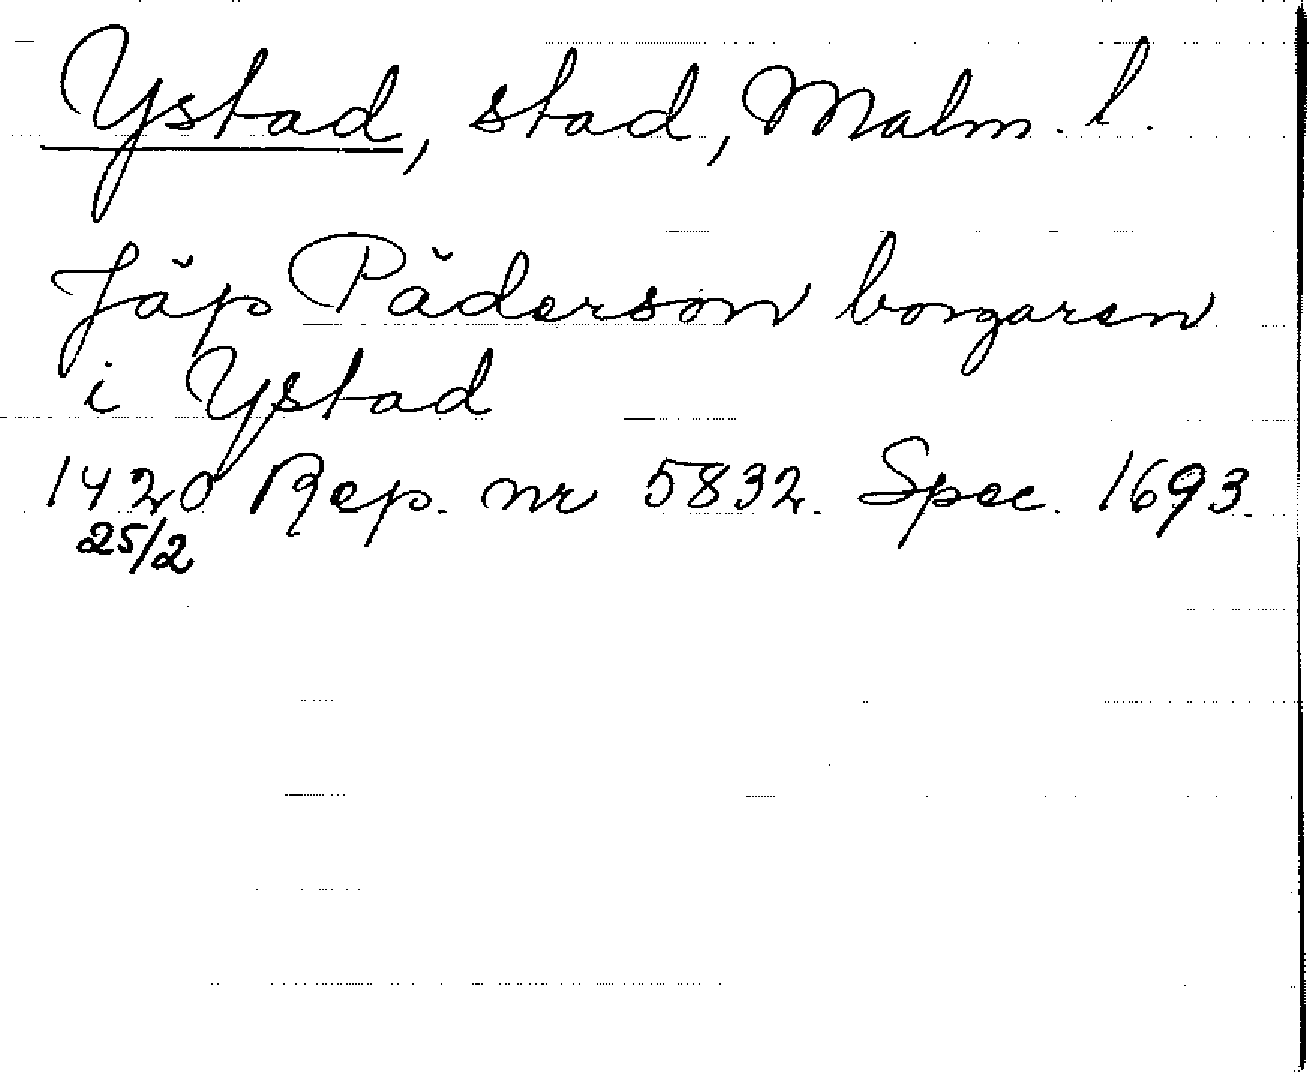 Ystad, stad, Malm. l.
Jäp Päderson borgaren
i Ystad
1420 Rep. nr 5832. Spec. 1693.
25/2